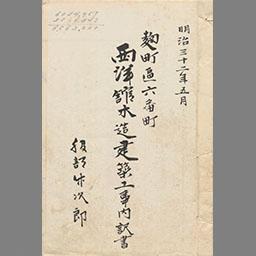 明治三十二年五月
麹町區六番町
西洋舘木造建築工事内訳書
服部 次郎